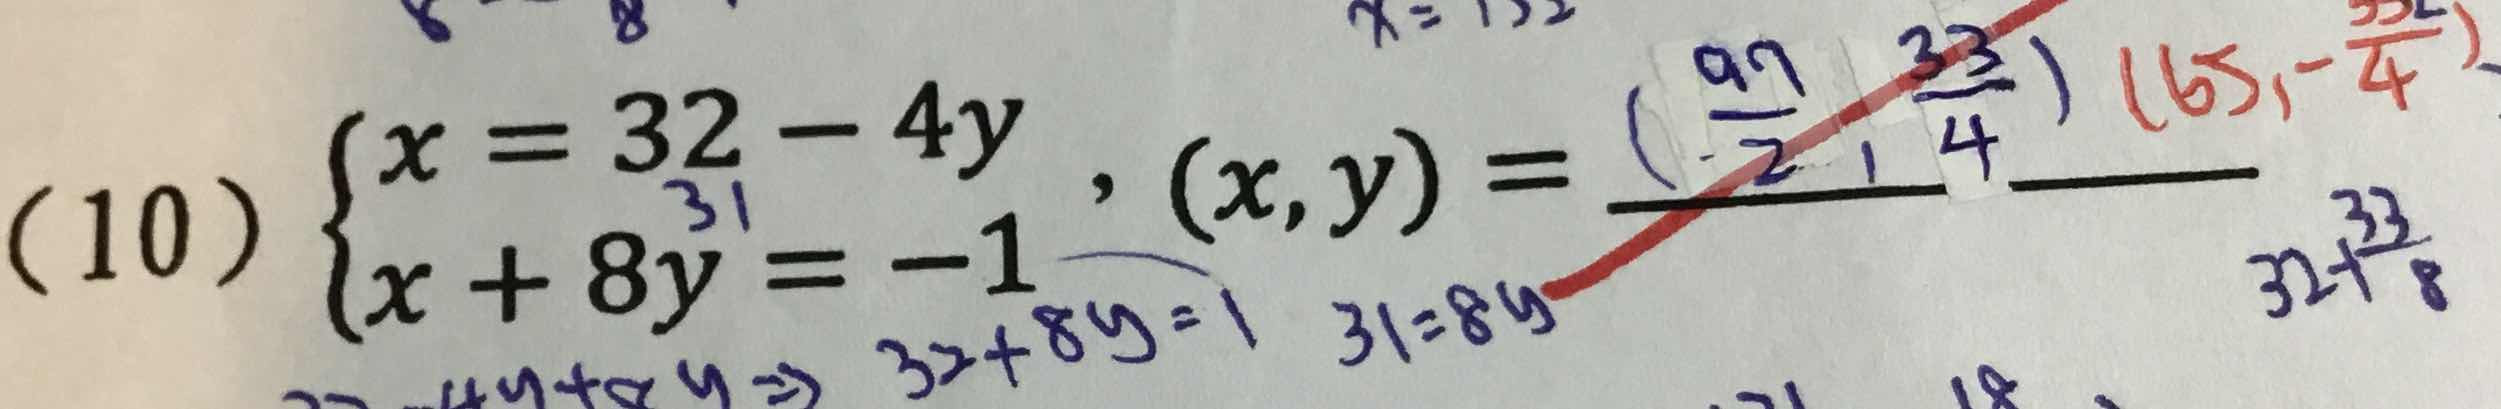 8 8 x = 132
(10) { x = 32 − 4y , (x, y) = ( 97/2 , 33/4 ) (65, -33/4)
31
x + 8y = −1
32+33/8
32+8y=1 31=8y
-4y+8y=>
18